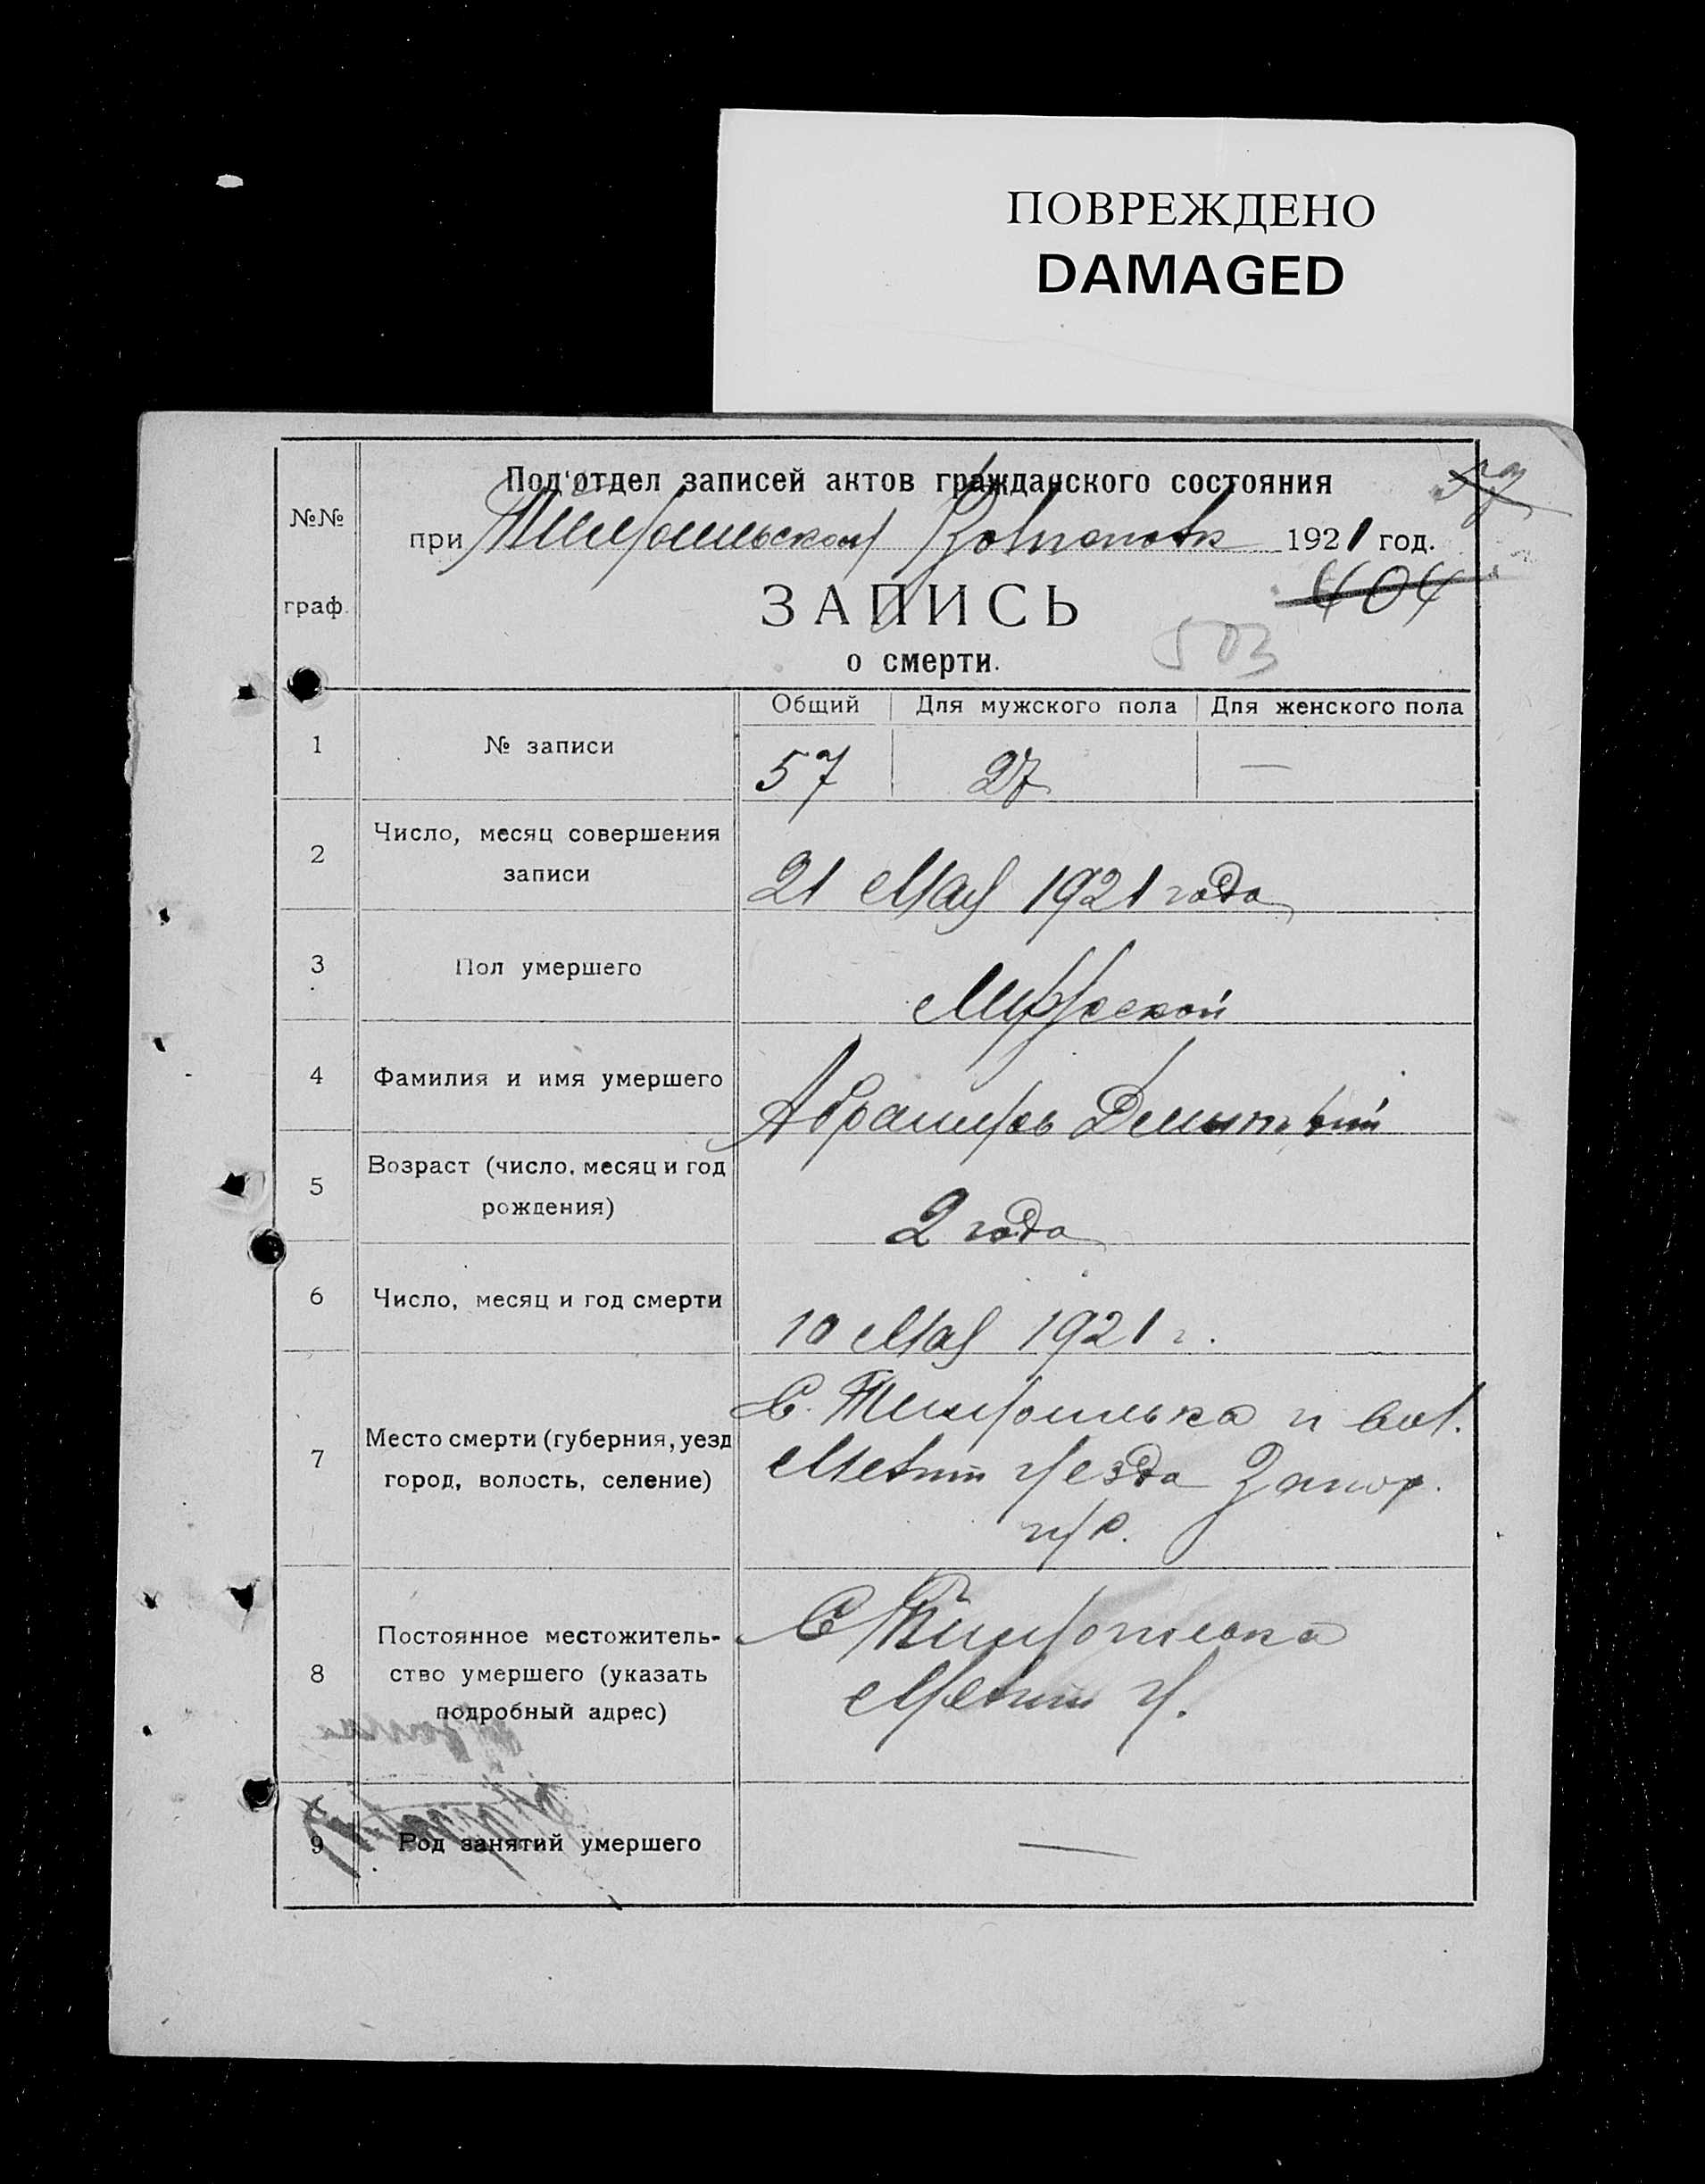 ПОВРЕЖДЕНО
DAMAGED
Под'отдел записей актов гражданского состояния
при Тимошьском Волисполк 1921 год.
404
№№
граф.
ЗАПИСЬ
о смерти.
503
Общий Для мужского пола Для женского пола
1 № записи 57 27 —
2 Число, месяц совершения
записи
21 Мая 1921 года
3 Пол умершего Мужской
4 Фамилия и имя умершего Дмитрий
5 Возраст (число, месяц и год
рождения)
2 года
6 Число, месяц и год смерти 10 Мая 1921 г.
7 Место смерти (губерния, уезд
город, волость, селение)
С. и вол.
Мелит уезда Запор.
губ.
8 Постоянное местожитель-
ство умершего (указать
подробный адрес)
С
Мелит у.
9 Род занятий умершего —